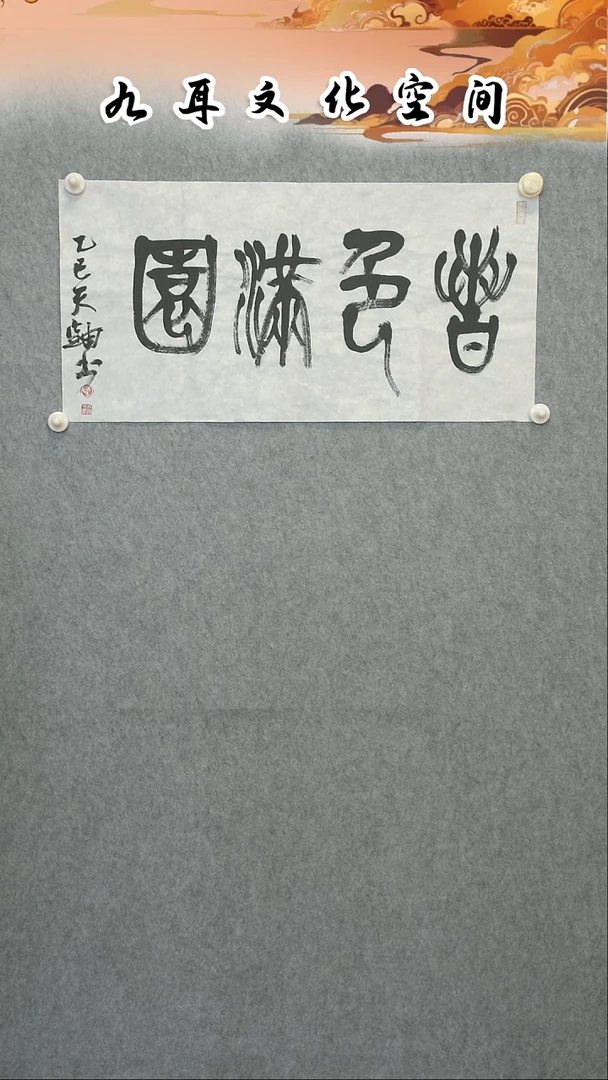 九耳文化空间
春色滿園
乙巳天书